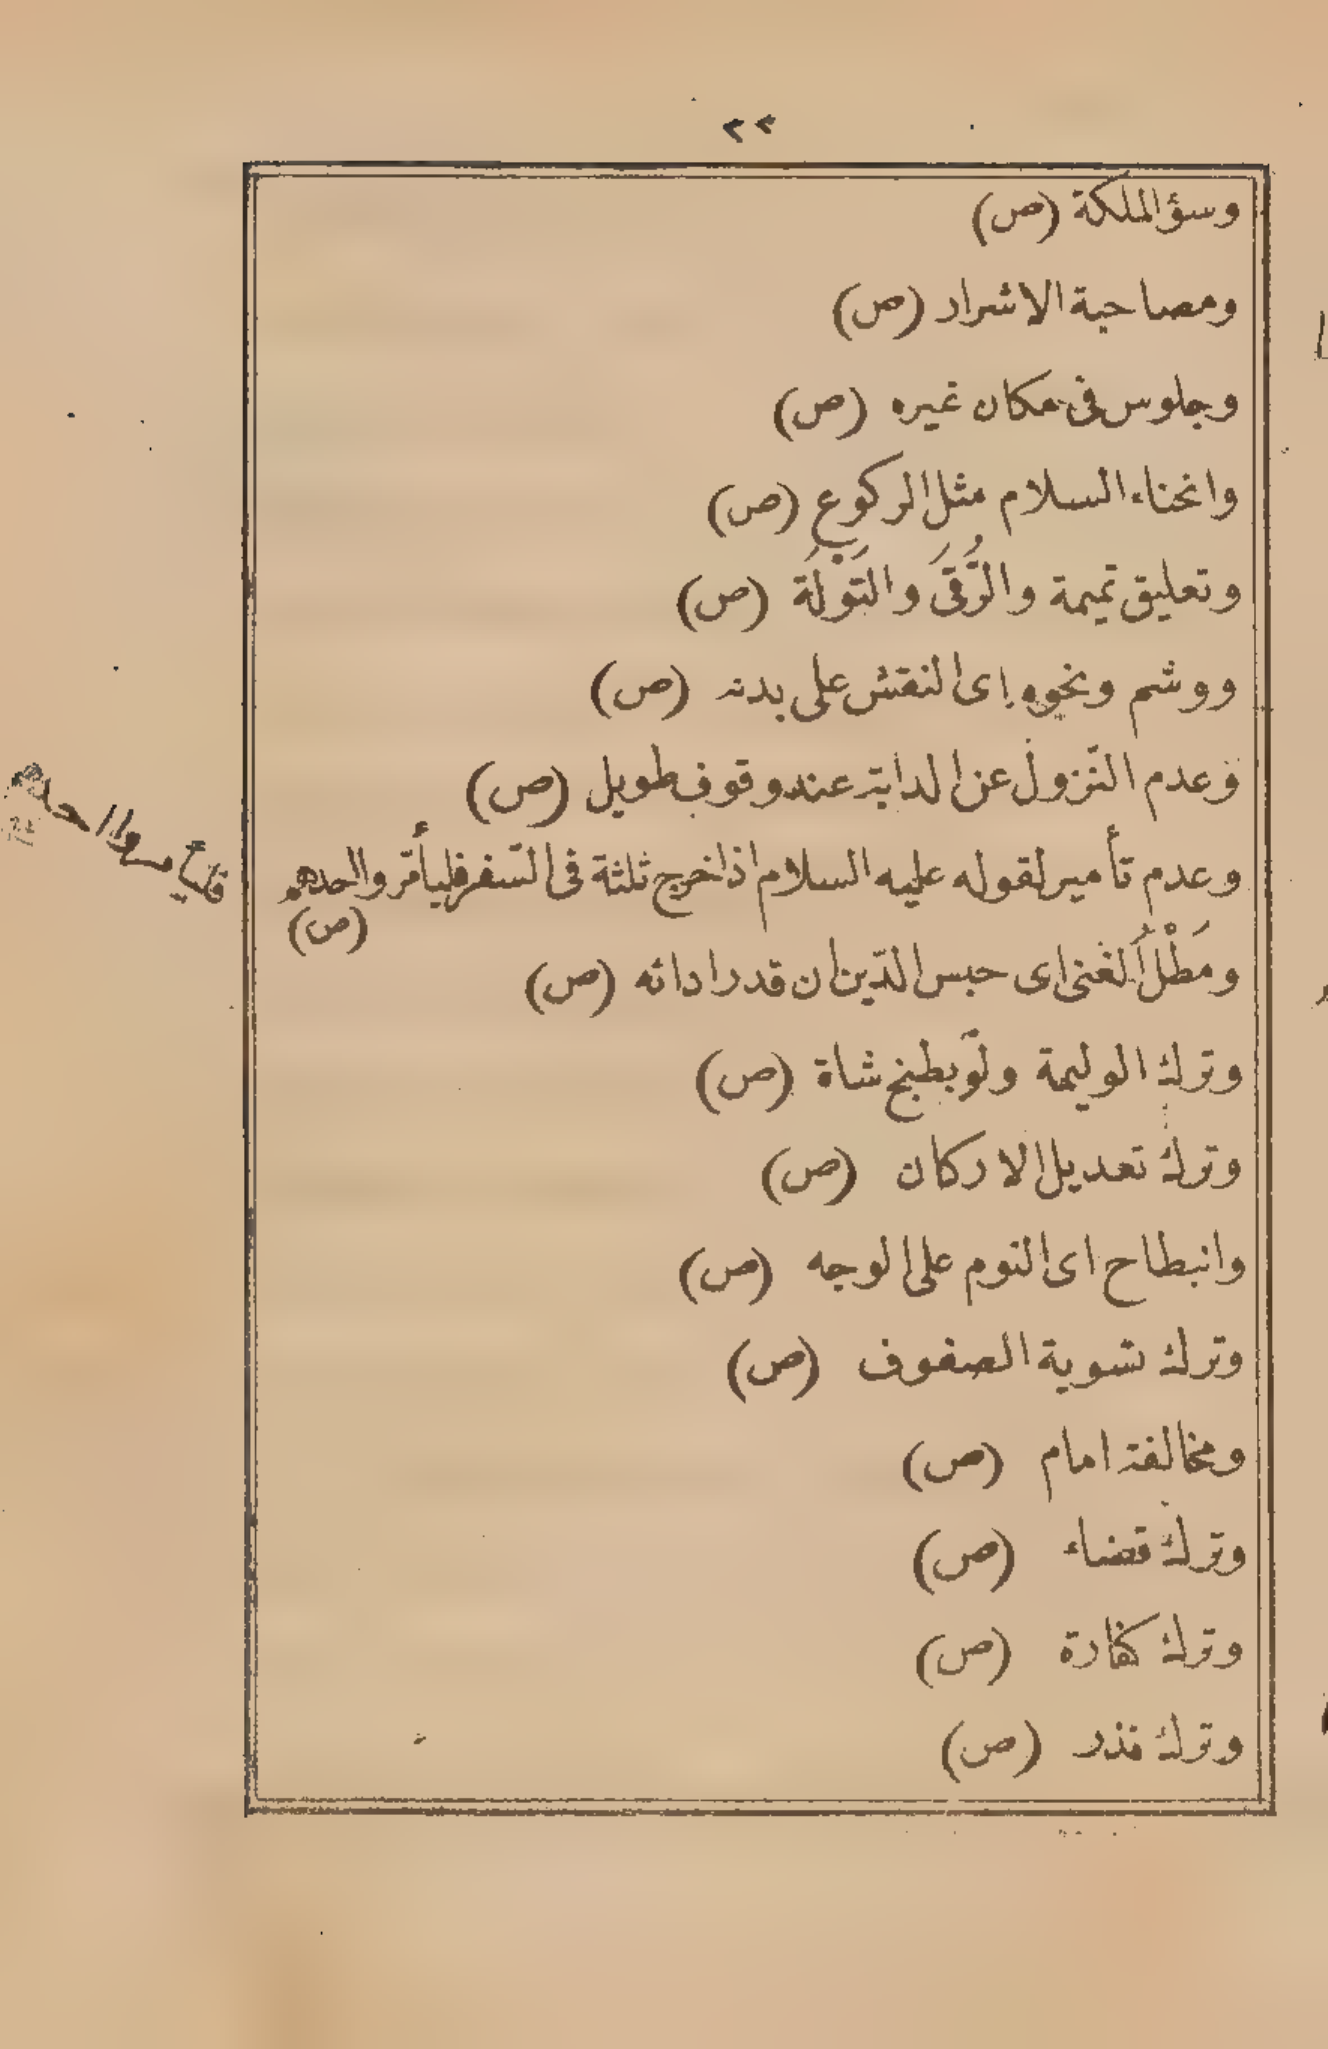 ٢٢
وسؤالملكة (ص)
ومصاحبة الاشرار (ص)
وجلوس فى مكان غيره (ص)
وانحناء السلام مثل الركوع (ص)
وتعليق تميمة والرُّقَىَ والتَوْلَة (ص)
ووشم ونحوه اى النقش على بدنه (ص)
وعدم النّزول عن الدابة عند وقوف طويل (ص)
وعدم تأمير لقوله عليه السلام اذا خرج ثلثة فى السّفر فليأمّروا احدهم
(ص)
فليأمروا احدهم
ومَطْلُ الغنى اى حبس الدّين ان قدر ادائه (ص)
وترك الوليمة ولَو بطبخ شاة (ص)
وترك تعديل الاركان (ص)
وانبطاح اى النوم على الوجه (ص)
وترك تسوية الصفوف (ص)
ومخالفة امام (ص)
وترك قضاء (ص)
وترك كفارة (ص)
وترك نذر (ص)